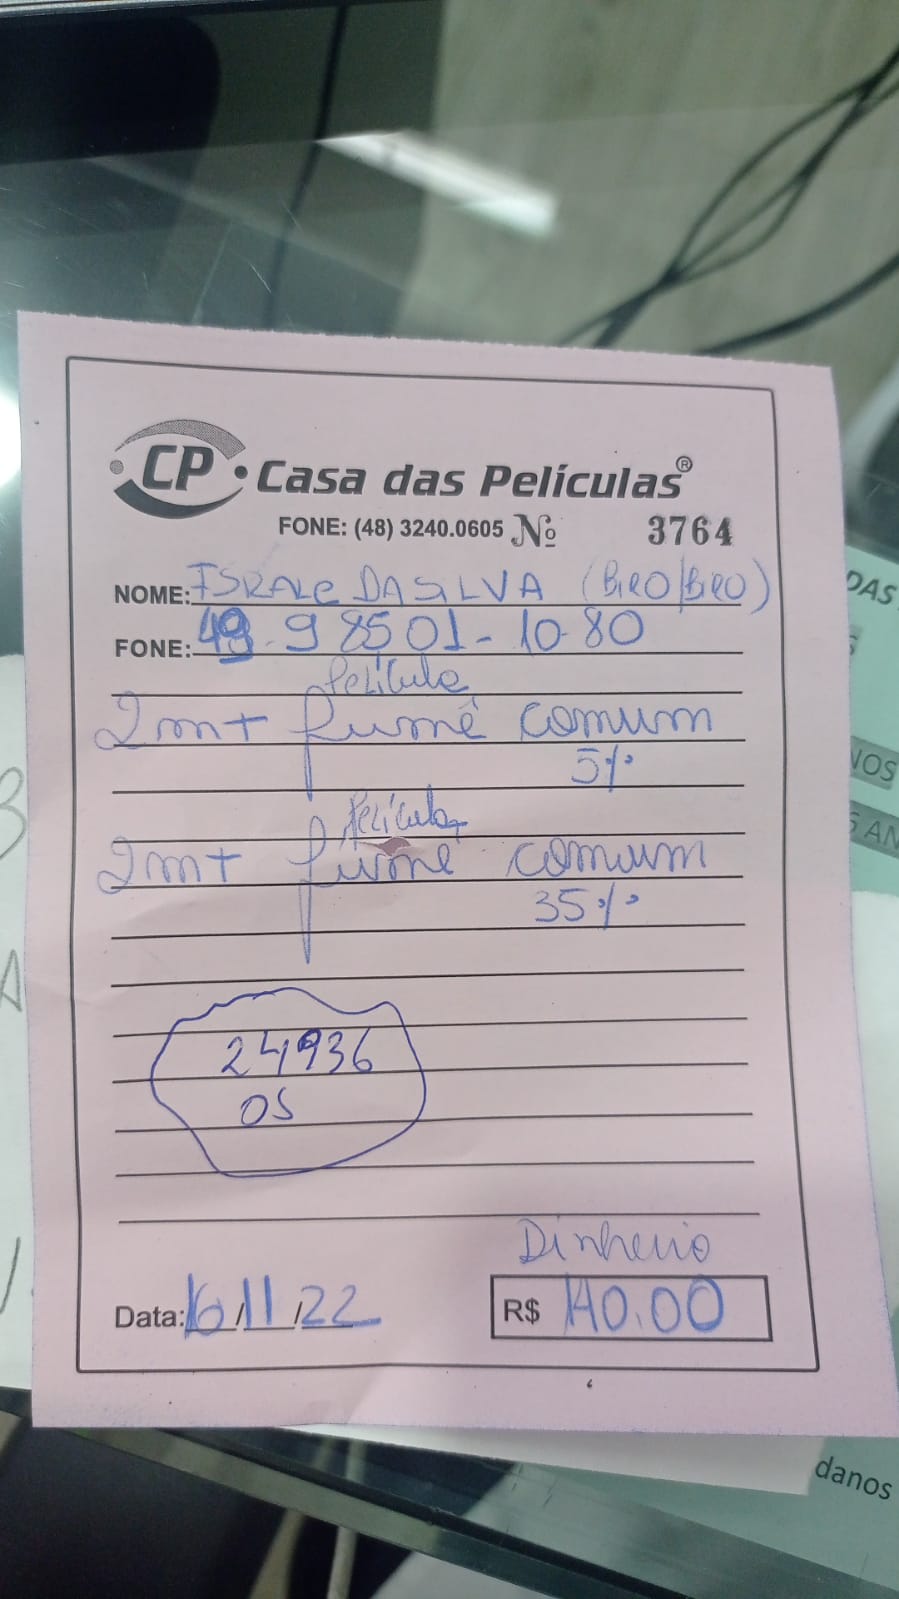 CP Casa das Películas®
FONE: (48) 3240.0605 Nº 3764
NOME: ISRALC DA SILVA (BIRO/BIRO)
FONE: 49-9 8501-10-80
Película
2mt fumê comum
5%
Película
2mt fumê comum
35%
24936
OS
Dinheiro
Data: 16/11/22 R$ 140.00
DAS
NOS
S AN
danos